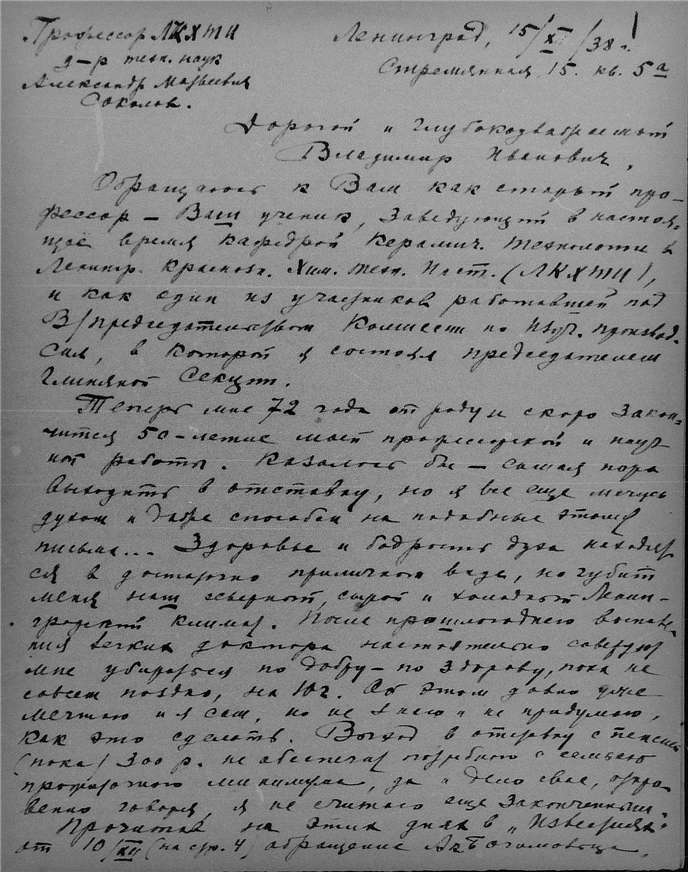 Профессор ЛКХТИ
д-р техн. наук
Александр Матвеевич
Соколов.
Ленинград, 15/XII/38 г.
Стремянная, 15. кв. 5а
Дорогой и глубокоуважаемый
Владимир Иванович,
Обращаюсь к Вам как старый про-
фессор – Ваш ученик, заведующий в настоя-
щее время кафедрой Керамич. Технологии в
Ленингр. Краснозн. Хим. техн. Инст. (ЛКХТИ),
и как один из участников работавшей под
В/председательством Комиссии по Изуч. производ.
сил, в которой я состоял председателем
Глиняной Секции.
Теперь мне 72 года от роду и скоро закон-
чится 50-летие моей профессорской и науч-
ной работы. Казалось бы – самая пора
выходить в отставку, но я все еще мечусь
духом и даже способен на подобные этому
письма... Здоровье и бодрость духа находят-
ся в достаточно приличном виде, но губит
меня наш северный, сырой и холодный Ленин-
градский климат. После прошлогоднего воспале-
ния легких доктора настоятельно советуют
мне убираться по добру – по здорову, пока не
совсем поздно, на юг. Об этом давно уже
мечтаю и я сам, но не и не придумаю,
как это сделать. Выход в отставку с пенсией
(пока) 300 р. не обеспечит потребного с семьею
прожиточного минимума, да и дело свое, откро-
венно говоря, я не считаю еще законченным.
Прочитав на этих днях в „Известиях"
от 10/XII (на стр. 4) обращение Ак. Богомольца,